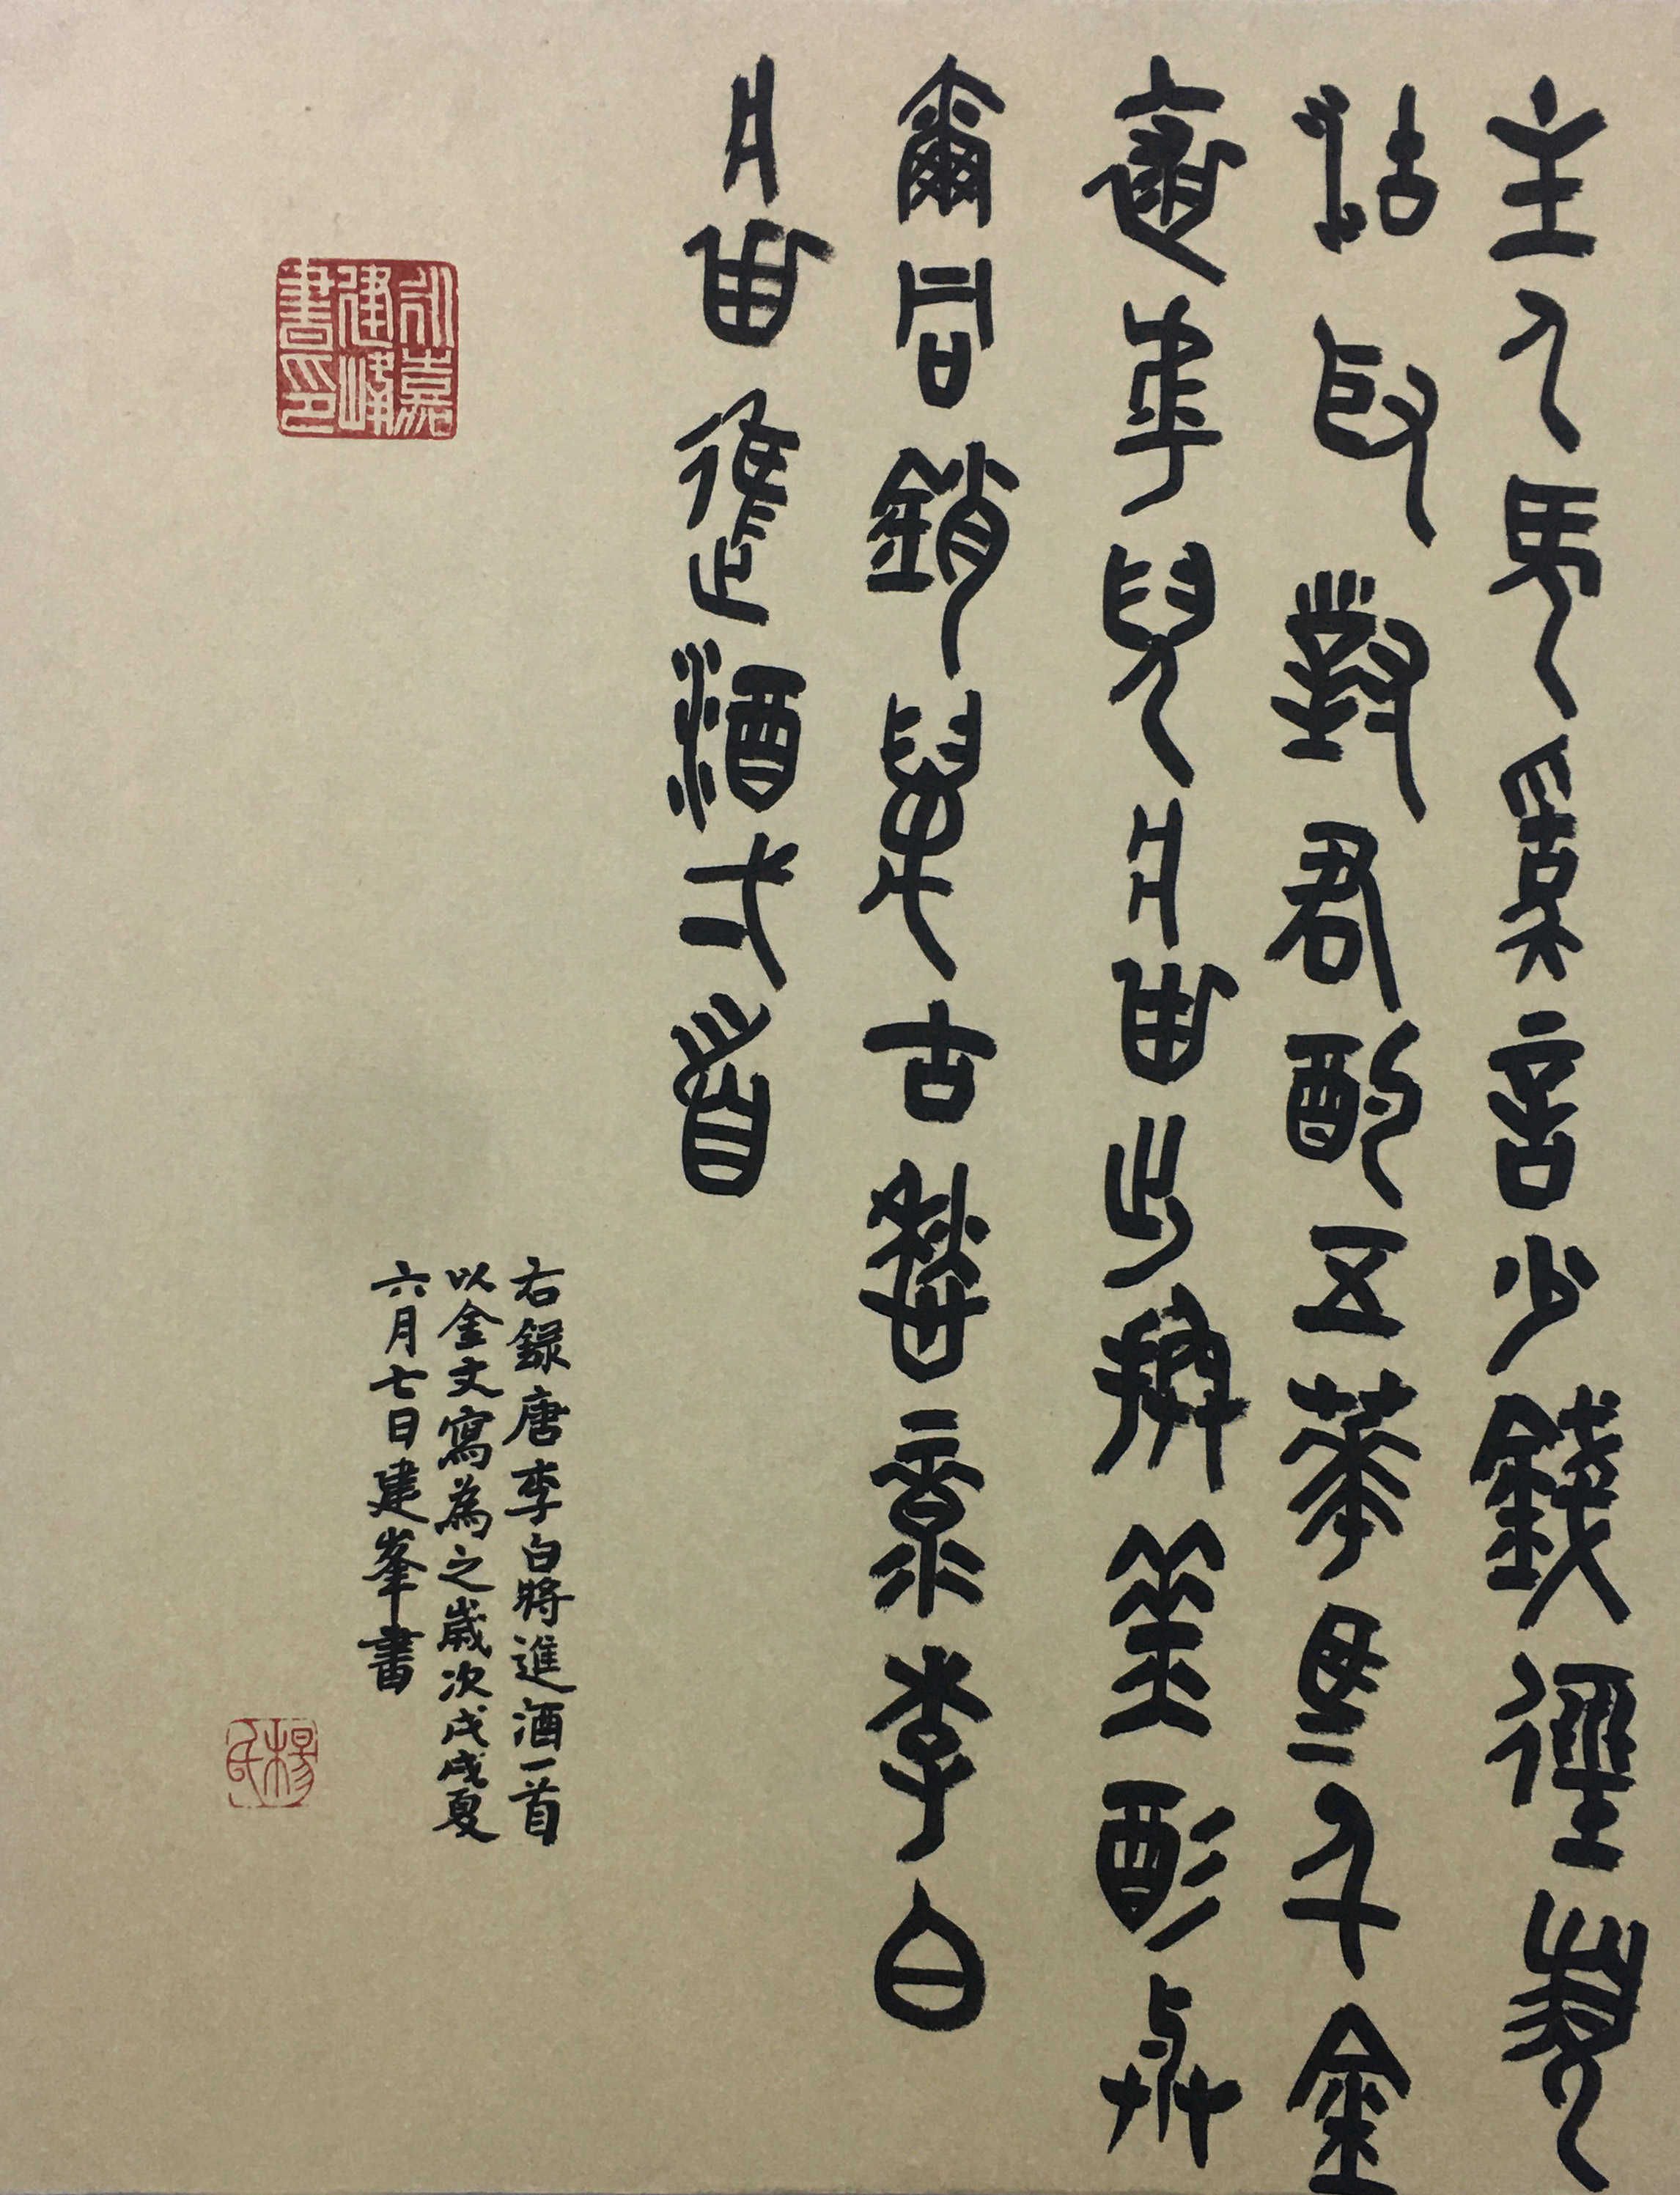 主人為何言少錢徑須
沽取對君酌五華馬千金
裘呼兒將出換美酒與
爾同銷萬古愁李白
將進酒弌首
右錄唐李白將進酒一首
以金文寫為之歲次戊戌夏
六月七日建峯書
永嘉建峰書印
楊氏